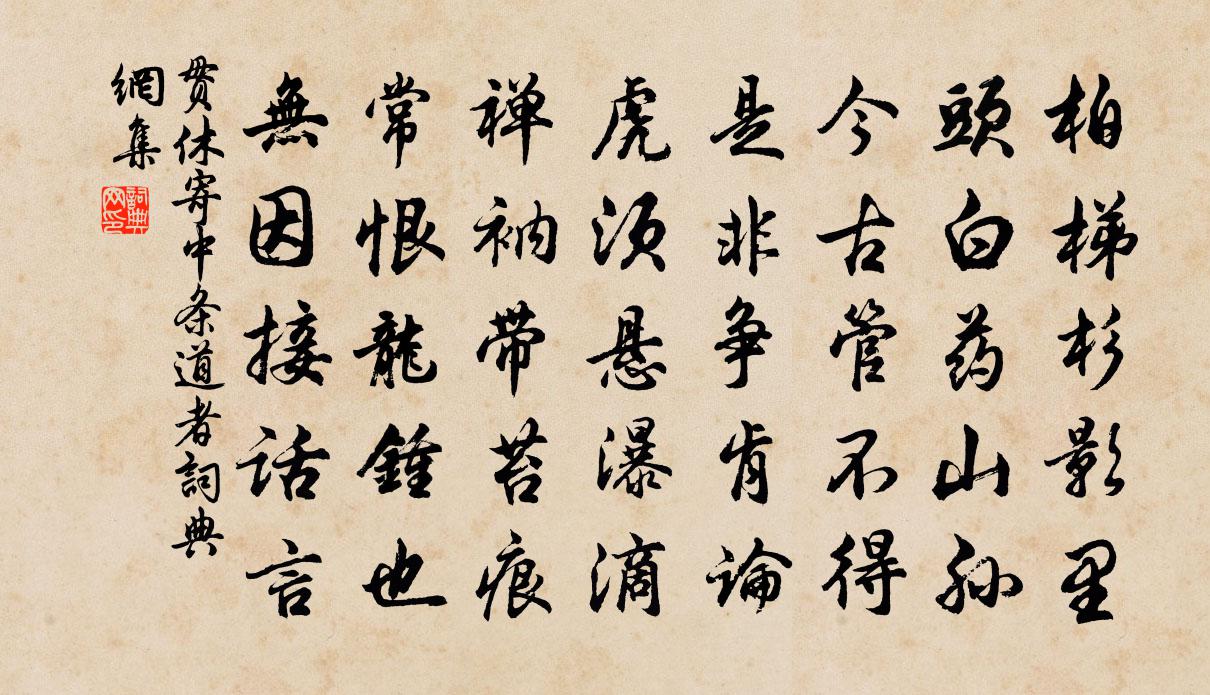 柏梯杉影里
頭白药山孙
今古管不得
是非争肯論
虎须悬瀑滴
禅衲带苔痕
常恨龍鍾也
無因接话言
贯休寄中条道者詞典
網集
詞典网印